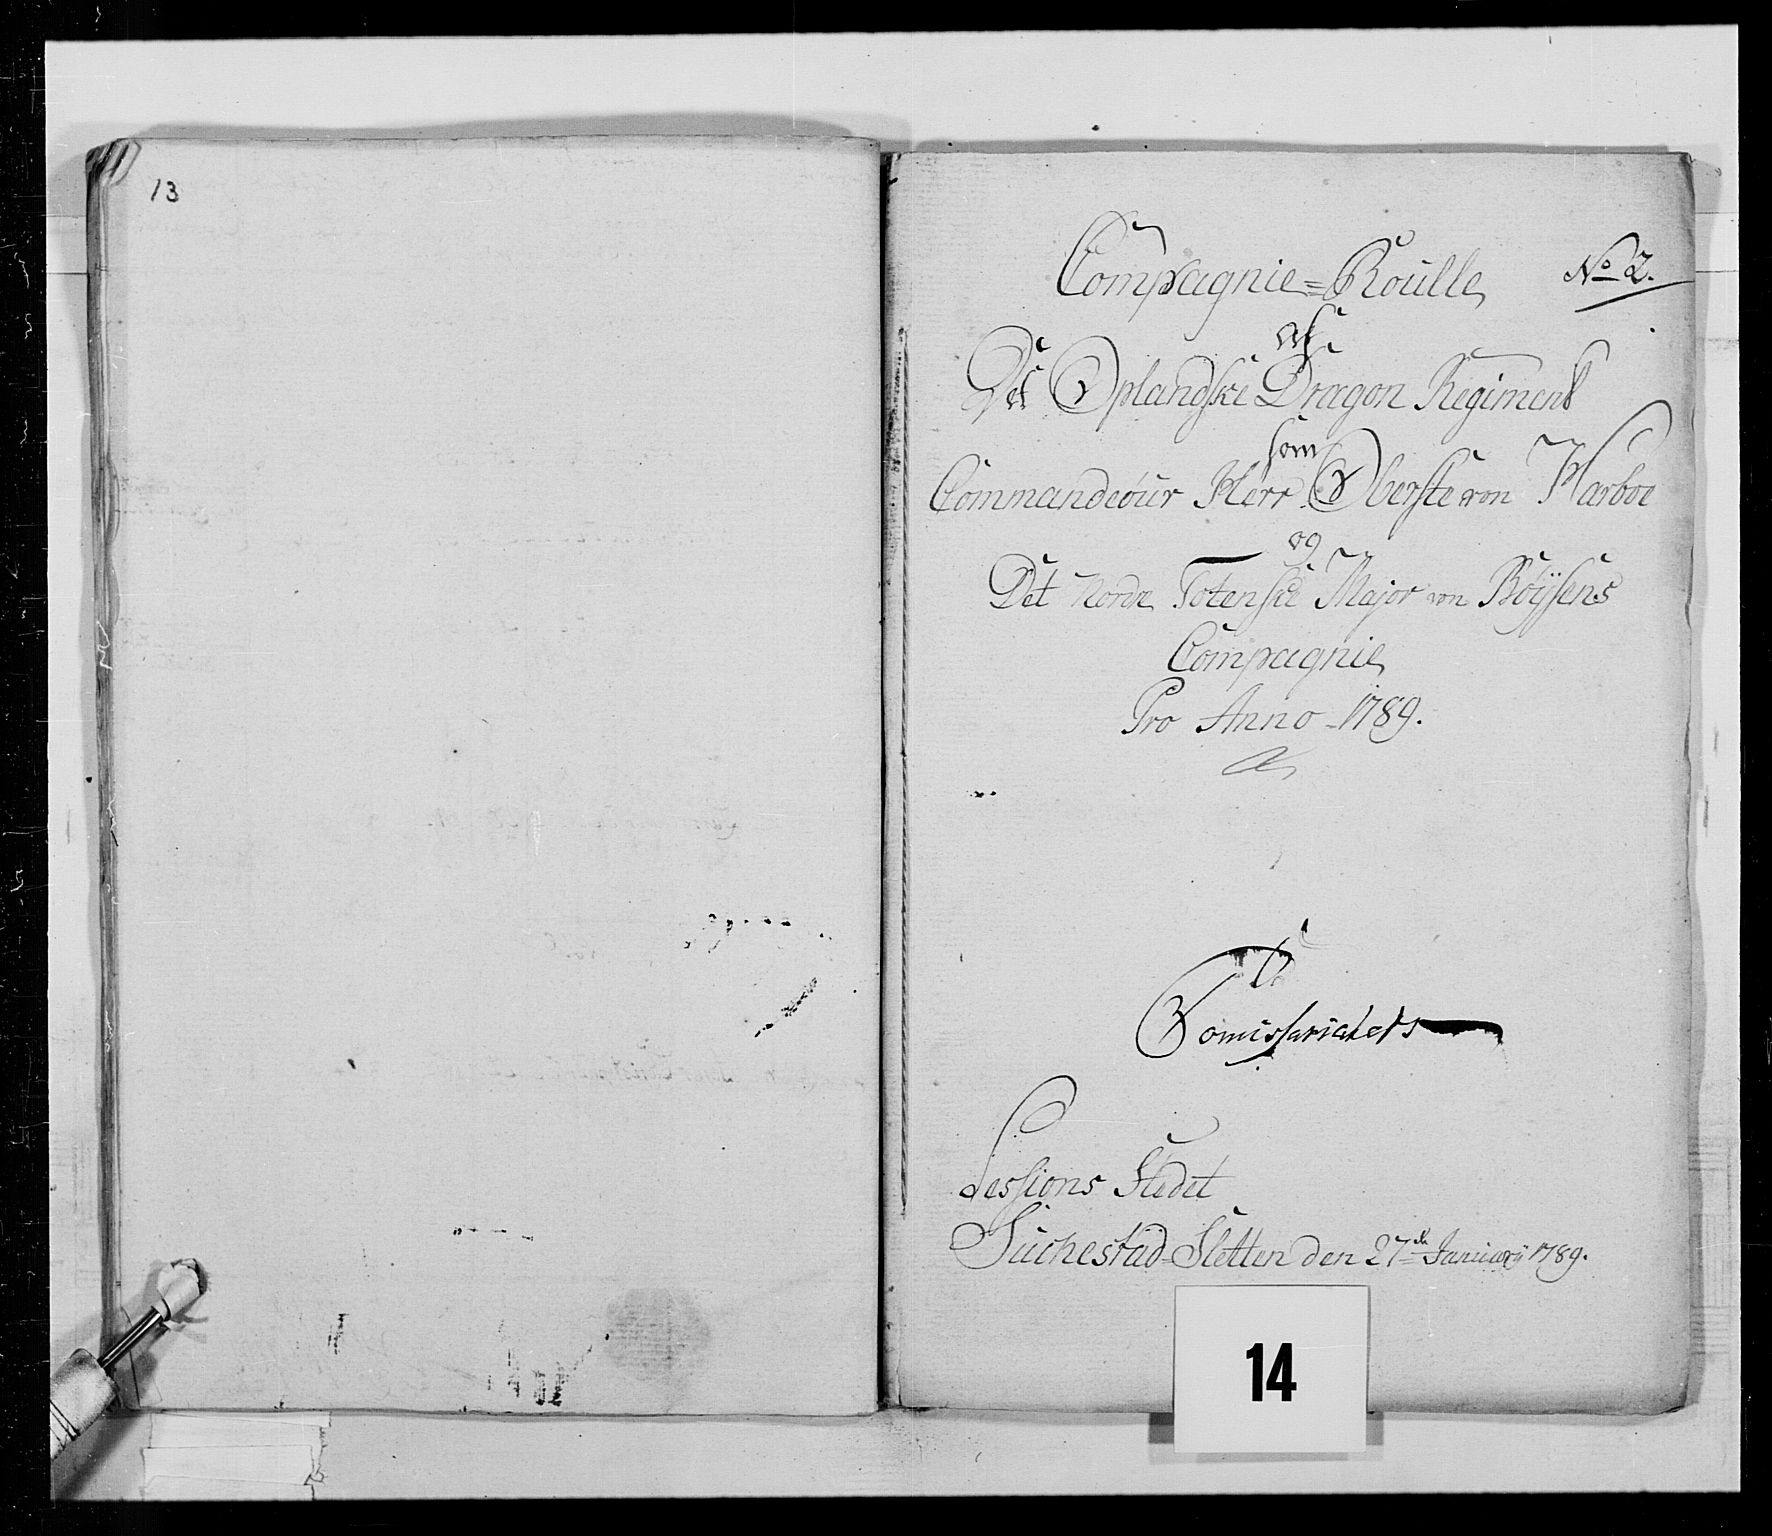 13
Compagnie=Roulle
No 2.
af
Det Oplandske Dragon Regiment
som
Commandeour Herr Oberste von Harboe
og
Det Nordre Totenske Major von Böÿsens
Compagnie
Pro Anno 1789.
Comissariatets
Sessions Stedet
Sletten den 27de Januarÿ 1789.
14